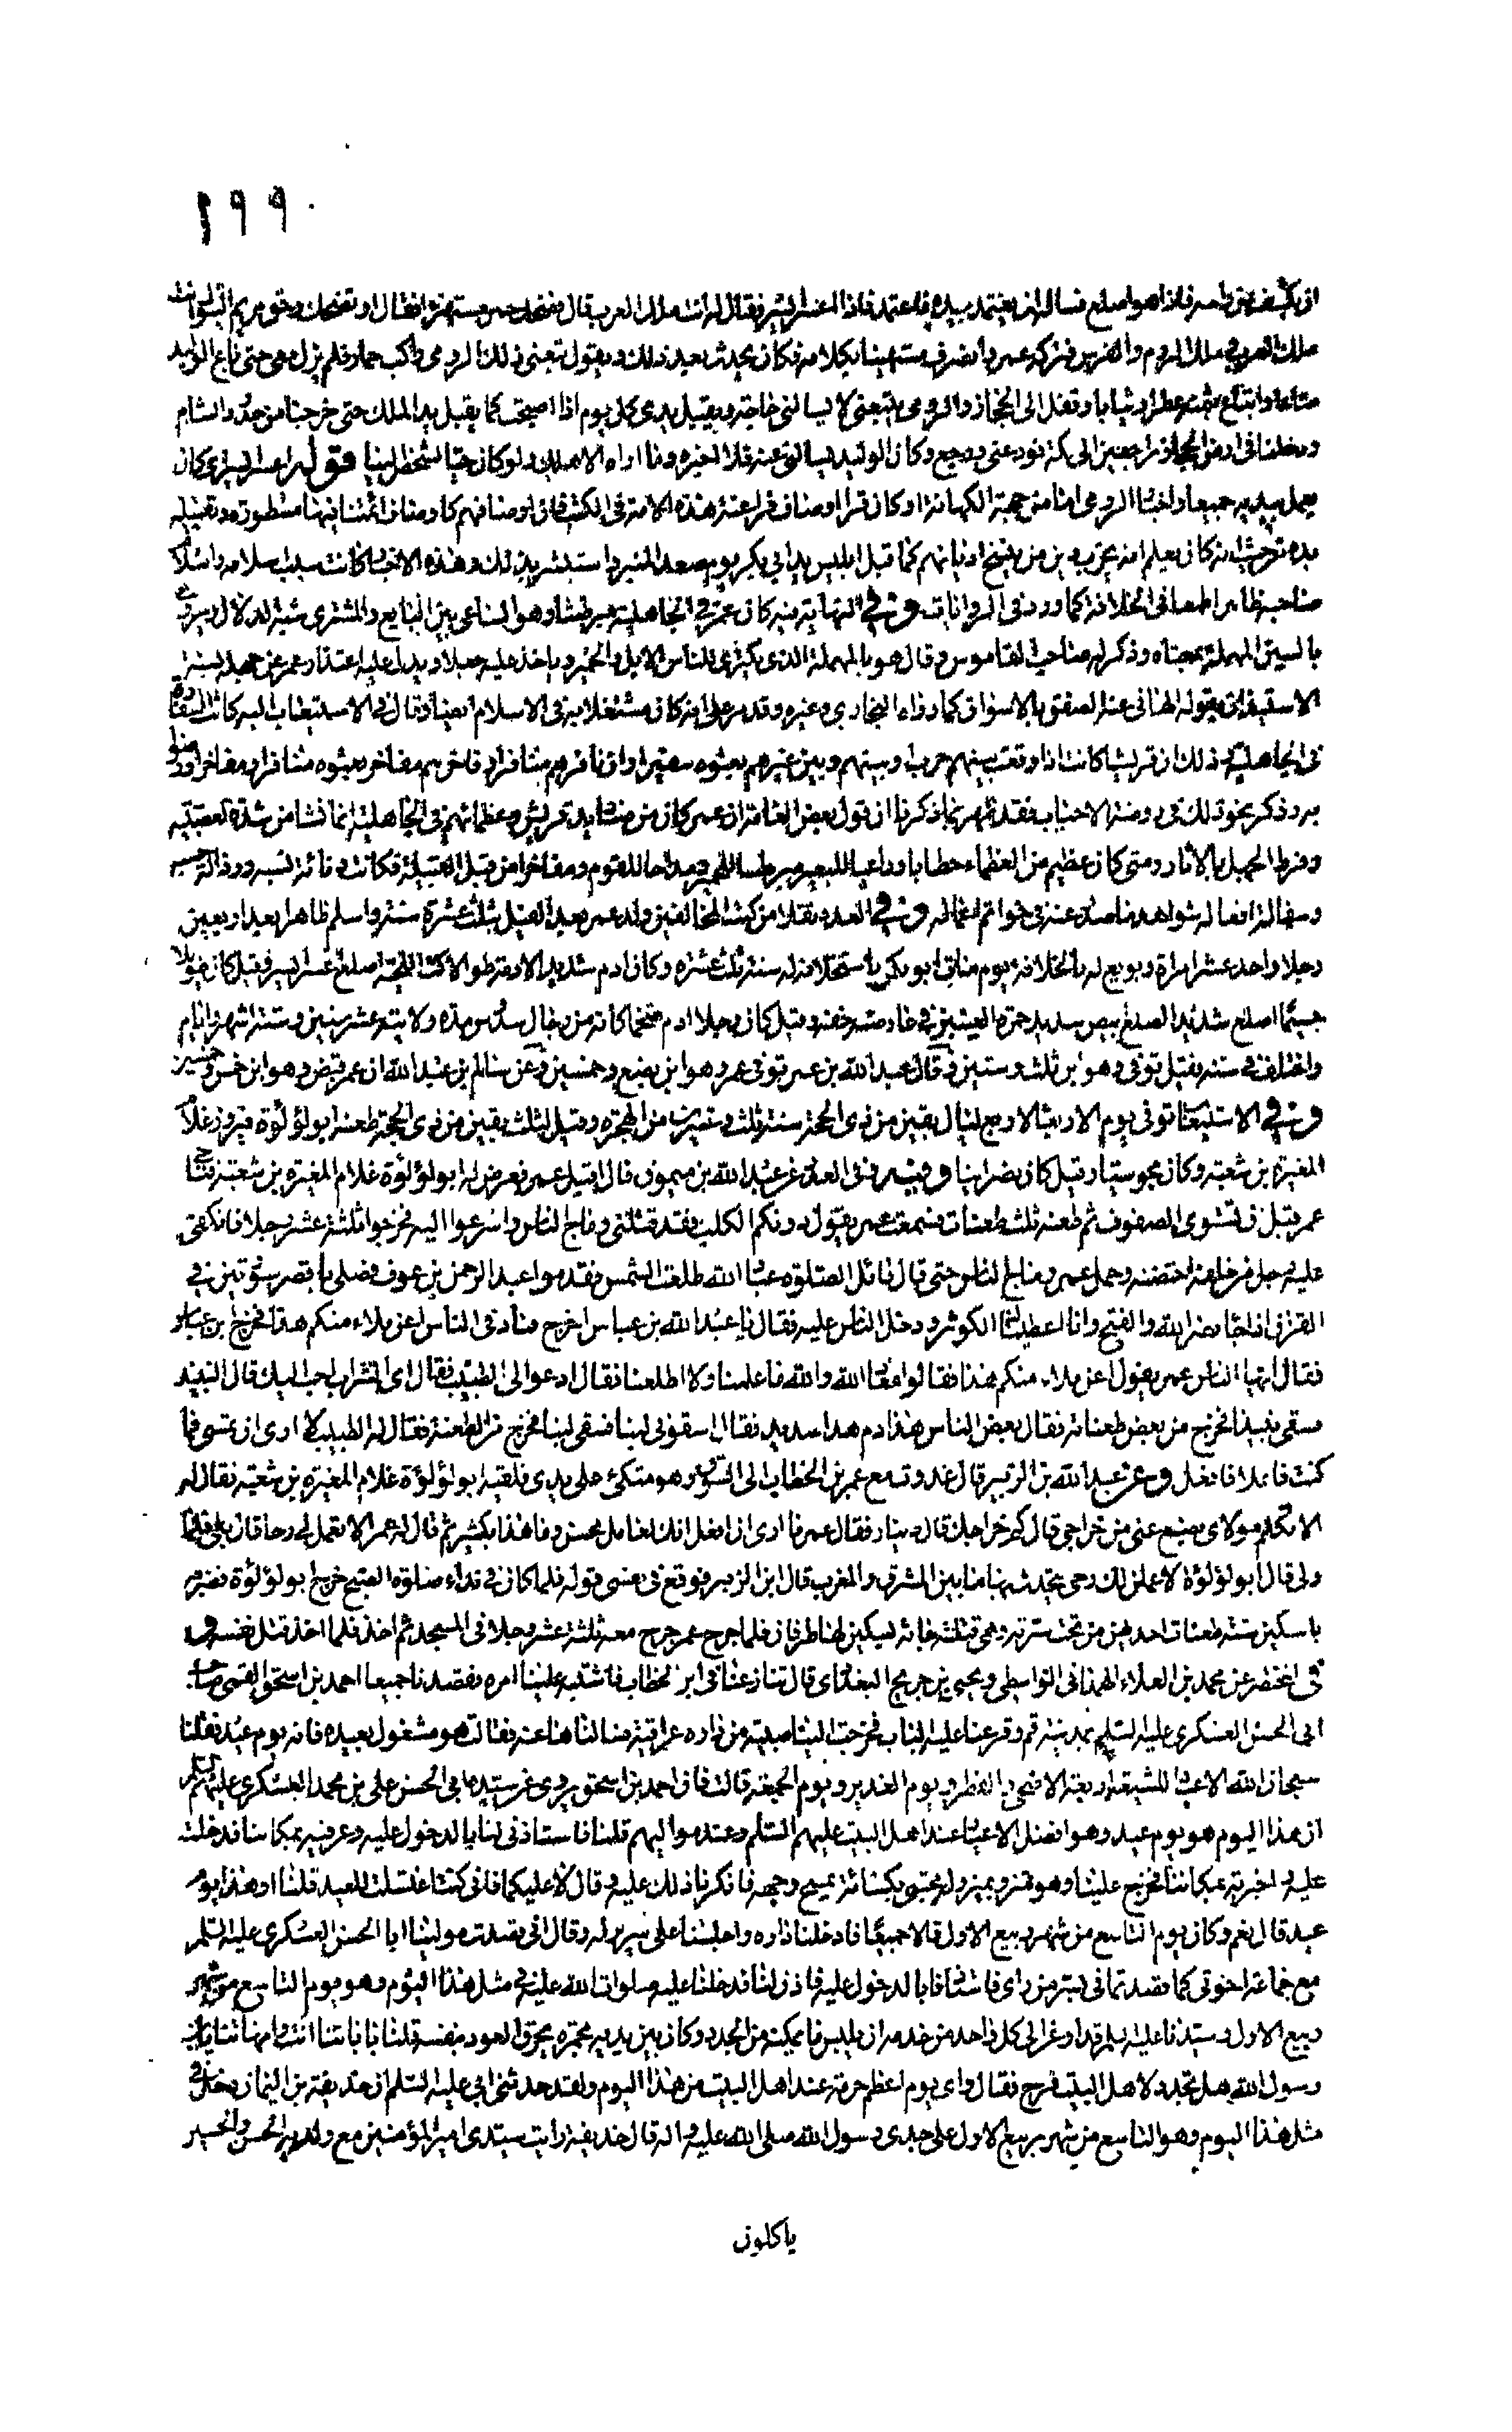 ١٩٩٠
ان يكشف عن راسه فاذا هو اصلع فساله ان يعتمد بيده فاعتمد فاذا اعسر ايسر فقال له انت ملك العرب قال فضحك عمر مستهزءا فقال او تضحك وحق مريم البتول انت
ملك العرب و ملك الروم والفرس فتركه عمر وانصرف مستهينا بكلامه فكان يحدث بعد ذلك ويقول تبعنى ذلك الرومى راكب حمار فلم يزل معى حتى باع الوليد
متاعه وابتاع بثمنه عطرا وثيابا وقفل الى الحجاز والرومى يتبعنى لا يسالنى حاجة ويقبل يدى كل يوم اذا اصبحت كما يقبل يد الملك حتى خرجنا من حدود الشام
ودخلنا فى ارض الحجاز راجعين الى مكة فودعنى ورجع وكان الوليد يسالنى عنه فلا اخبره وما اراه الا هلك ولو كان حيا لشخص الينا قوله اعسر ايسر اى كان
يعمل بيديه جميعا واخبار الرومى اما من جهة الكهانة او كان قرا اوصاف فراعنة هذه الامة فى الكتب فان اوصافهم كاوصاف ائمتنا فيها مسطورة وتقبيله
يده من حيث انه كان يعلم انه يخرب دين من ينسخ اديانهم كما قبل ابليس يد ابى بكر يوم صعد المنبر واستبشر بذلك وهذه الاخبار كانت سبب اسلامه واسلام
صاحبه ظاهرا طمعا فى الخلافة كما ورد فى الروايات وفى النهاية فيه كان عمر فى الجاهلية مبرطشا وهو الساعى بين البايع والمشترى شبه الدلال ويروى
بالسين المهملة بمعناه وذكره صاحب القاموس وقال هو بالمهملة الذى يكترى للناس الابل والحمير وياخذ عليه جعلا ويدل عليه اعتذار عمر عن جهله بسنة
الاستيذان بقوله الهانى عنه الصفق بالاسواق كما رواه البخارى وغيره وقد مر على انه كان مشتغلا به فى الاسلام ايضا وقال فى الاستيعاب اليه كانت السفارة
فى الجاهلية وذلك ان قريشا كانت اذا وقعت بينهم حرب او بينهم وبين غيرهم بعثوه سفيرا وان نافرهم منافر او فاخرهم مفاخر بعثوه منافرا ومفاخرا ورضوا
به وذكر نحو ذلك فى روضة الاحباب فقد ظهر بما ذكرنا ان قول بعض العامة ان عمر كان من صناديد قريش وعظمائهم فى الجاهلية انما نشا من شدة تعصبه
وفرط الجهل بالاثار ومتى كان عظيم من العظماء حطابا وراعيا للبعير ومبرطسا للحمير ومداحا للقوم ومفاخرا من قبل القبيلة فكانت دنائة نسبه ورذالة حسبه
وسفالة افعاله شواهد ما صدر عنه فى خواتم اعماله وفى العدد نقلا من كتب المخالفين ولد عمر بعد الفيل بثلث عشرة سنة واسلم ظاهرا بعد اربعين
رجلا واحد عشر امراة وبويع له بالخلافة يوم مات ابو بكر باستخلافه له سنة ثلث عشره وكان ادم شديد الادمة طوالا كث اللحية اصلع اعسر ايسر وقيل كان طويلا
جسيما اصلع شديد الصلع ابيض شديد حمرة العينين فى عارضيه خفة وقيل كان رجلا ادم ضخما كانه من رجال سدوس مدة ولايته عشر سنين وستة اشهر وايام
واختلف فى سنه فقيل توفى وهو ابن ثلث وستين وقال عبد الله بن عمر توفى عمر وهو ابن بضع وخمسين وعن سالم بن عبد الله ان عمر قبض وهو ابن خمس وخمسين
وفى الاستيعاب توفى يوم الاربعاء لاربع ليال بقين من ذى الحجة سنة ثلث وعشرين من الهجرة وقيل لثلث بقين من ذى الحجة طعنه ابو لؤلؤة فيروز غلام
المغيرة بن شعبة وكان مجوسيا وقيل كان نصرانيا وفيه وفى العدد عن عبد الله بن ميمون قال اقبل عمر فعرض له ابو لؤلؤة غلام المغيرة بن شعبة فناجى
عمر قبل ان تستوى الصفوف ثم طعنه ثلث طعنات فسمعت عمر يقول دونكم الكلب فقد قتلنى وماج الناس واسرعوا اليه فخرجوا ثلثة عشر رجلا فانكفى
عليه رجل من خلفه فاحتضنه وحمل عمر وماج الناس حتى قال قائل الصلوة عباد الله طلعت الشمس فقدموا عبد الرحمن بن عوف فصلى باقصر سورتين فى
القرآن اذا جاء نصر الله والفتح وانا اعطيناك الكوثر ودخل الناس عليه فقال يا عبد الله بن عباس اخرج فناد فى الناس اعن ملاء منكم هذا فخرج ابن عباس
فقال ايها الناس عمر يقول اعن ملاء منكم هذا فقالوا معاذ الله والله ما علمنا ولا اطلعنا فقال ادعوا لى الطبيب فقال اى الشراب احب اليك قال النبيذ
فسقى نبيذا فخرج من بعض طعناته فقال بعض الناس هذا دم هذا صديد فقال اسقونى لبنا فسقى لبنا فخرج من الطعنة فقال له الطبيب لا ارى ان تمسى فما
كنت فاعلا فافعل وعن عبد الله بن الزبير قال غدوت مع عمر بن الخطاب الى السوق وهو متكئ على يدى فلقيه ابو لؤلؤة غلام المغيرة بن شعبة فقال له
الا تكلم مولاى يضع عنى من خراجى قال كم خراجك قال دينار فقال عمر ما ارى ان افعل انك لعامل محسن وما هذا بكثير ثم قال له عمر الا تعمل لى رحا قال بلى فلما
ولى قال ابو لؤلؤة لاعملن لك رحى يتحدث بها ما بين المشرق والمغرب قال ابن الزبير فوقع فى نفسى قوله فلما كان فى نداء صلوة الصبح خرج ابو لؤلؤة فضربه
بالسكين ستة طعنات احديهن من تحت سرته وهى قتلته جائه بسكين لها طرفان فلما جرح عمر جرح معه ثلثة عشر رجلا فى المسجد ثم اخذ فلما اخذ قتل نفسه و
فى المختصر عن محمد بن العلاء الهمدانى الواسطى ويحيى بن جريج البغدادى قال تنازعنا فى ابن الخطاب فاشتبه علينا امره فقصدنا جميعا احمد بن اسحق القمى صاحب
ابى الحسن العسكرى عليه السلم بمدينة قم وقرعنا عليه الباب فخرجت الينا صبية من داره عراقية فسالناها عنه فقالت هو مشغول بعيده فانه يوم عيد فقلنا
سبحان الله الاعياد للشيعة اربعة الاضحى والفطر ويوم الغدير ويوم الجمعة قالت فان احمد بن اسحق يروى عن سيده ابى الحسن على بن محمد العسكرى عليهما السلم
ان هذا اليوم هو يوم عيد وهو افضل الاعياد عند اهل البيت عليهم السلم وعند مواليهم قلنا فاستاذنى لنا بالدخول عليه وعرفيه بمكاننا فدخلت
عليه واخبرته بمكاننا فخرج علينا وهو متزر بمئزر له محتبى بكسائه يمسح وجهه فانكرنا ذلك عليه وقال لا عليكما فانى كنت اغتسلت للعيد قلنا او هذا يوم
عيد قال نعم وكان يوم التاسع من شهر ربيع الاول قالا جميعا فادخلنا داره واجلسنا على سرير له وقال انى قصدت مولينا ابا الحسن العسكرى عليه السلم
مع جماعة اخوتى كما قصدتمانى بسر من راى فاستاذنا بالدخول عليه فاذن لنا فدخلنا عليه صلوات الله عليه فى مثل هذا اليوم وهو يوم التاسع من شهر
ربيع الاول وسيدنا عليه السلم قد اوعز الى كل واحد من خدمه ان يلبس ما يمكنه من الجدد وكان بين يديه مجمرة يحرق العود بنفسه قلنا بابائنا انت وامهاتنا يا بن
رسول الله هل تجدد لاهل البيت فرح فقال واى يوم اعظم حرمة عند اهل البيت من هذا اليوم ولقد حدثنى ابى عليه السلم ان حذيفة بن اليمان دخل فى
مثل هذا اليوم وهو التاسع من شهر ربيع الاول على جدى رسول الله صلى الله عليه واله قال حذيفة رايت سيدى امير المؤمنين مع ولديه الحسن والحسين
ياكلون